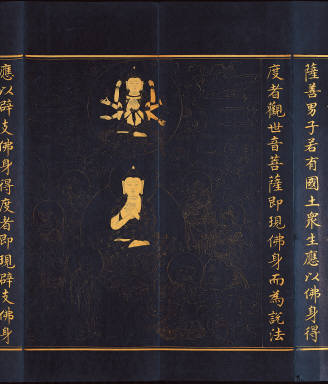 薩善男子若有國土衆生應以佛身得
度者觀世音菩薩即現佛身而為說法
應以辟支佛身得度者即現辟支佛身